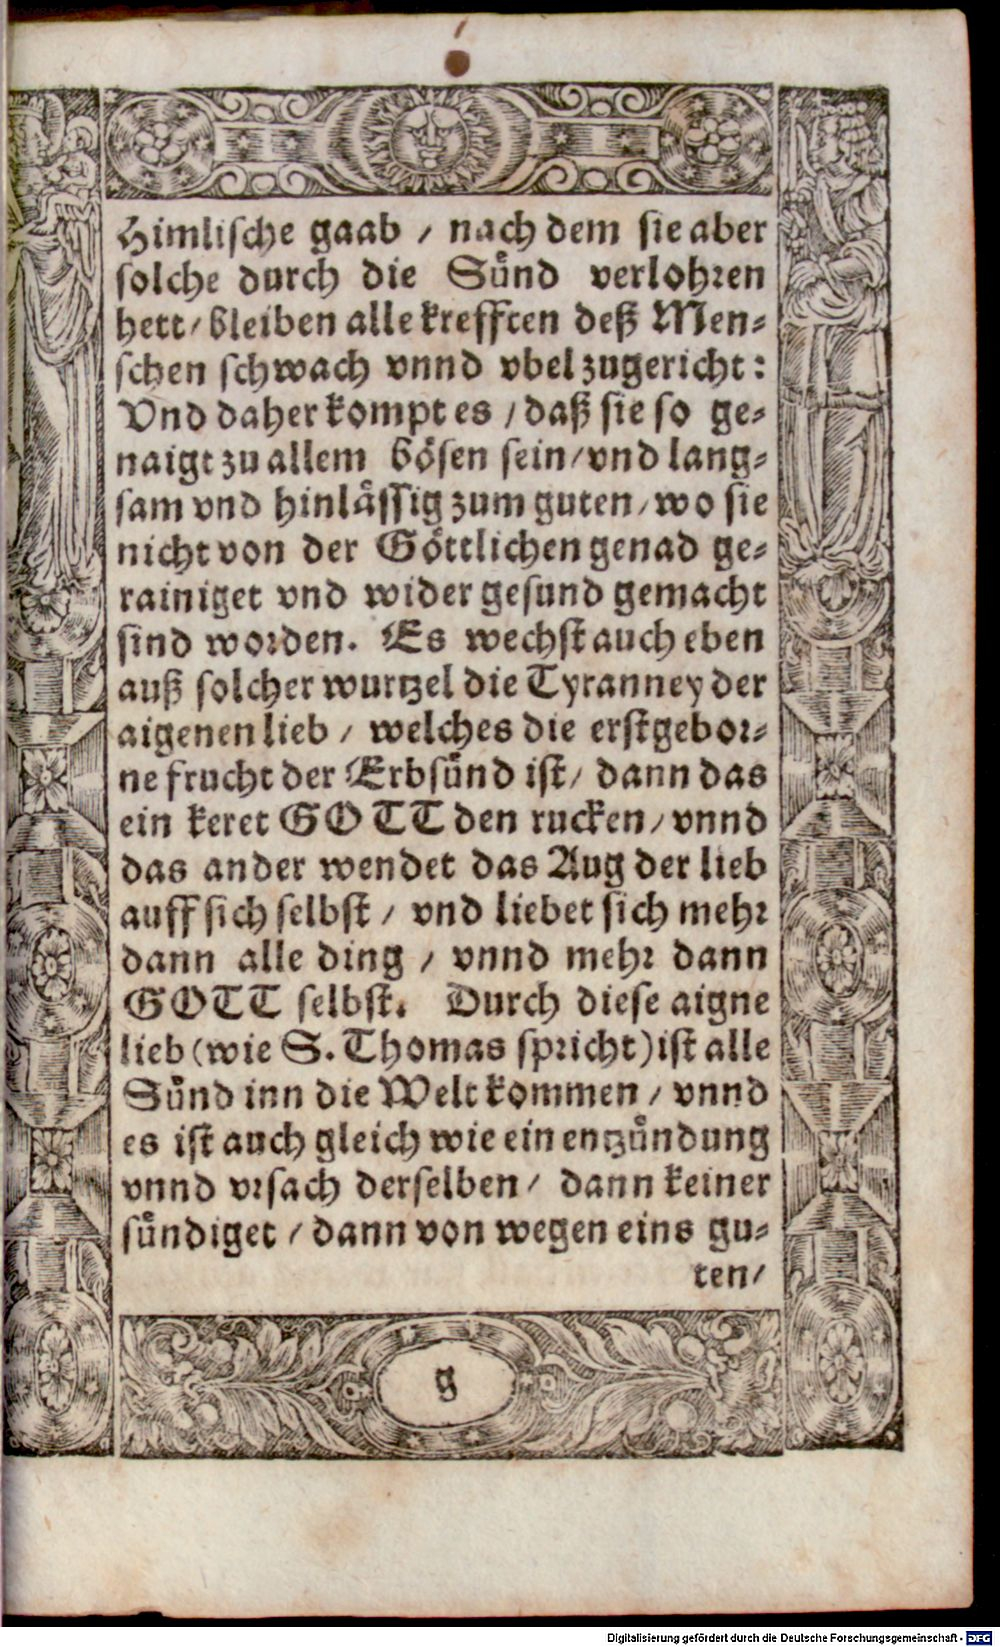 Himlische gaab / nach dem sie aber
solche durch die Suͤnd verlohren
hett / bleiben alle krefften deß Men⸗
schen schwach vnnd vbel zugericht:
Vnd daher kompt es / daß sie so ge⸗
naigt zu allem boͤsen sein / vnd lang⸗
sam vnd hinlaͤssig zum guten / wo sie
nicht von der Goͤttlichen genad ge⸗
rainiget vnd wider gesund gemacht
sind worden. Es wechst auch eben
auß solcher wurtzel die Tyranney der
aigenen lieb / welches die erstgebor⸗
ne frucht der Erbsuͤnd ist / dann das
ein keret GOTT den rucken / vnnd
das ander wendet das Aug der lieb
auff sich selbst / vnd liebet sich mehr
dann alle ding / vnnd mehr dann
GOTT selbst. Durch diese aigne
lieb (wie S. Thomas spricht) ist alle
Suͤnd inn die Welt kommen / vnnd
es ist auch gleich wie ein entzuͤndung
vnnd vrsach derselben / dann keiner
suͤndiget / dann von wegen eins gu⸗
ten /
g
Digitalisierung gefördert durch die Deutsche Forschungsgemeinschaft - DFG